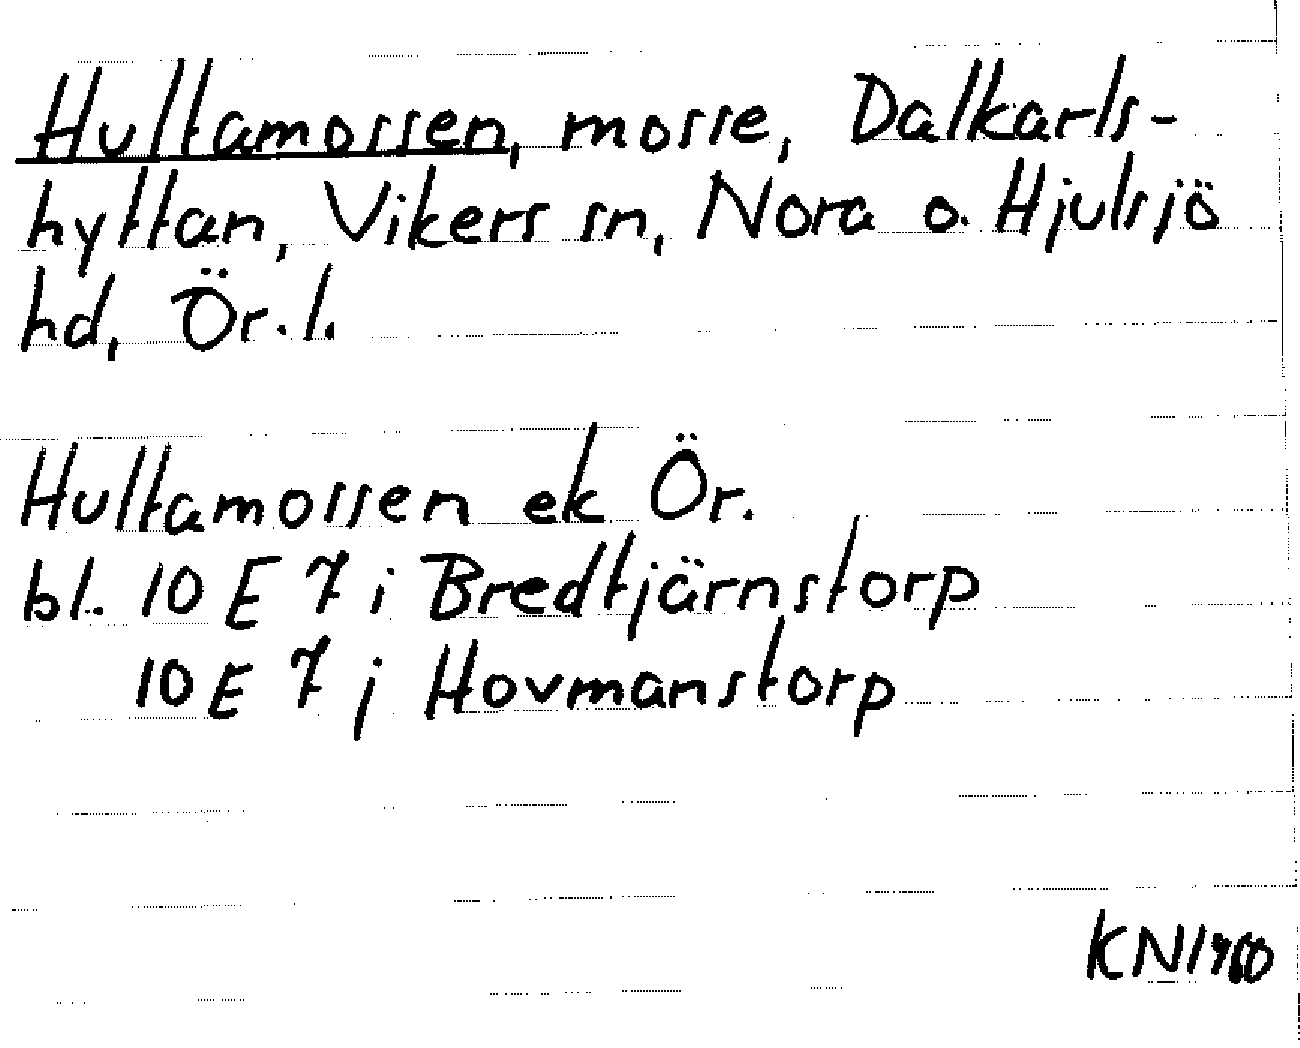 Hultamossen, mosse, Dalkarls-
hyttan, Vikers sn, Nora o. Hjulsjö
hd, Ör. l.
Hultamossen ek Ör.
bl. 10 E 7 i Bredtjärnstorp
10 E 7 j Hovmanstorp
KN1960